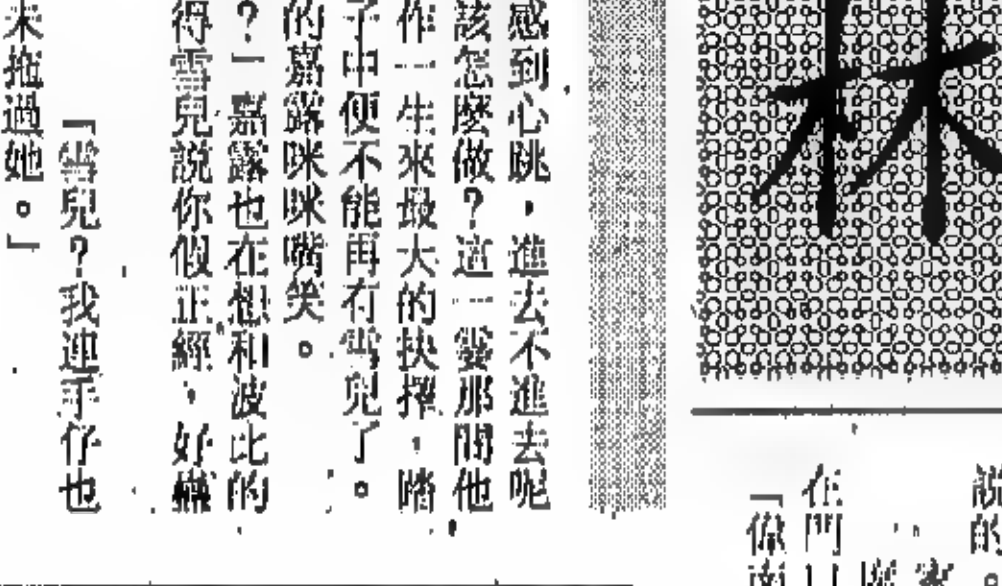 林
感到心跳，進去不進去呢
該怎麼做？這一霎那間他
作一生來最大的抉擇，踏
子中便不能再有雪兒了。
的嘉露咪咪嘴笑。
？」嘉露也在想和波比的
得雪兒說你假正經，好
「雪兒？我連手仔也
未拖過她。」
說的
在門
「偉